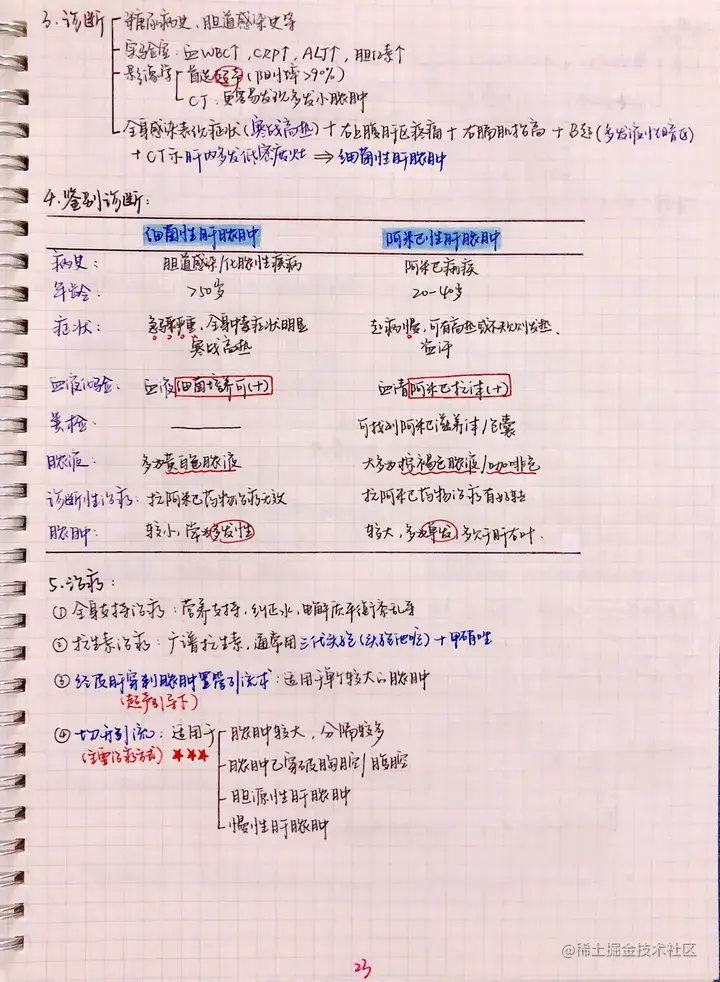 3. 诊断 糖尿病史、胆道感染史等
实验室：血WBC↑，CRP↑，ALT↑，胆红素↑
影像学 首选超声（阳性率>90%）
CT：更容易发现多发小脓肿
全身感染表现症状（寒战高热）+ 右上腹肝区疼痛 + 右膈肌抬高 + B超（多发液性暗区）
+ CT示肝内多发低密度灶 ⇒ 细菌性肝脓肿
4. 鉴别诊断：
细菌性肝脓肿 阿米巴性肝脓肿
病史： 胆道感染/化脓性疾病 阿米巴痢疾
年龄： >50岁 20-40岁
症状： 急骤严重，全身中毒症状明显 起病慢，可有高热或不规则发热、
寒战高热 盗汗
血液化验： 血液细菌培养可(+) 血清阿米巴抗体(+)
粪检： —— 可找到阿米巴滋养体/包囊
脓液： 多为黄白色脓液 大多为棕褐色脓液/咖啡色
诊断性治疗： 抗阿米巴药物治疗无效 抗阿米巴药物治疗有好转
脓肿： 较小，常为多发性 较大，多为单发，多见于肝右叶.
5. 治疗：
① 全身支持治疗：营养支持，纠正水，电解质平衡紊乱等
② 抗生素治疗：广谱抗生素，通常用三代头孢（头孢他啶）+ 甲硝唑
③ 经皮肝穿刺脓肿置管引流术：适用于单个较大的脓肿
（超声引导下）
④ 切开引流：适用于 脓肿较大，分隔较多
（主要治疗方式）★★★
脓肿已穿破胸腔/腹腔
胆源性肝脓肿
慢性肝脓肿
23
@稀土掘金技术社区